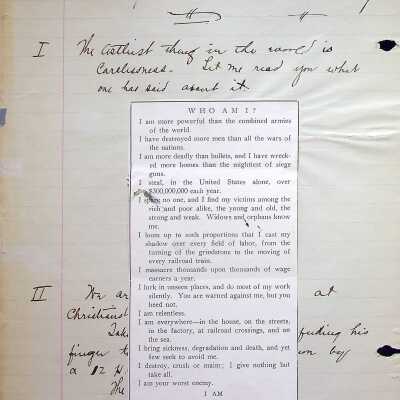 I The costliest thing in the world is
Carelessness. Let me read you what
one has said about it.
WHO AM I?
I am more powerful than the combined armies
of the world.
I have destroyed more men than all the wars of
the nations.
I am more deadly than bullets, and I have wreck-
ed more homes than the mightiest of siege
guns.
I steal, in the United States alone, over
$300,000,000 each year.
I spare no one, and I find my victims among the
rich and poor alike, the young and old, the
strong and weak. Widows and orphans know
me.
I loom up to such proportions that I cast my
shadow over every field of labor, from the
turning of the grindstone to the moving of
every railroad train.
I massacre thousands upon thousands of wage
earners a year.
I lurk in unseen places, and do most of my work
silently. You are warned against me, but you
heed not.
I am relentless.
I am everywhere—in the house, on the streets,
in the factory, at railroad crossings, and on
the sea.
I bring sickness, degradation and death, and yet
few seek to avoid me.
I destroy, crush or maim; I give nothing but
take all.
I am your worst enemy.
I AM
II We ar at
Christmas
Tak his
finger to by
a 12
The